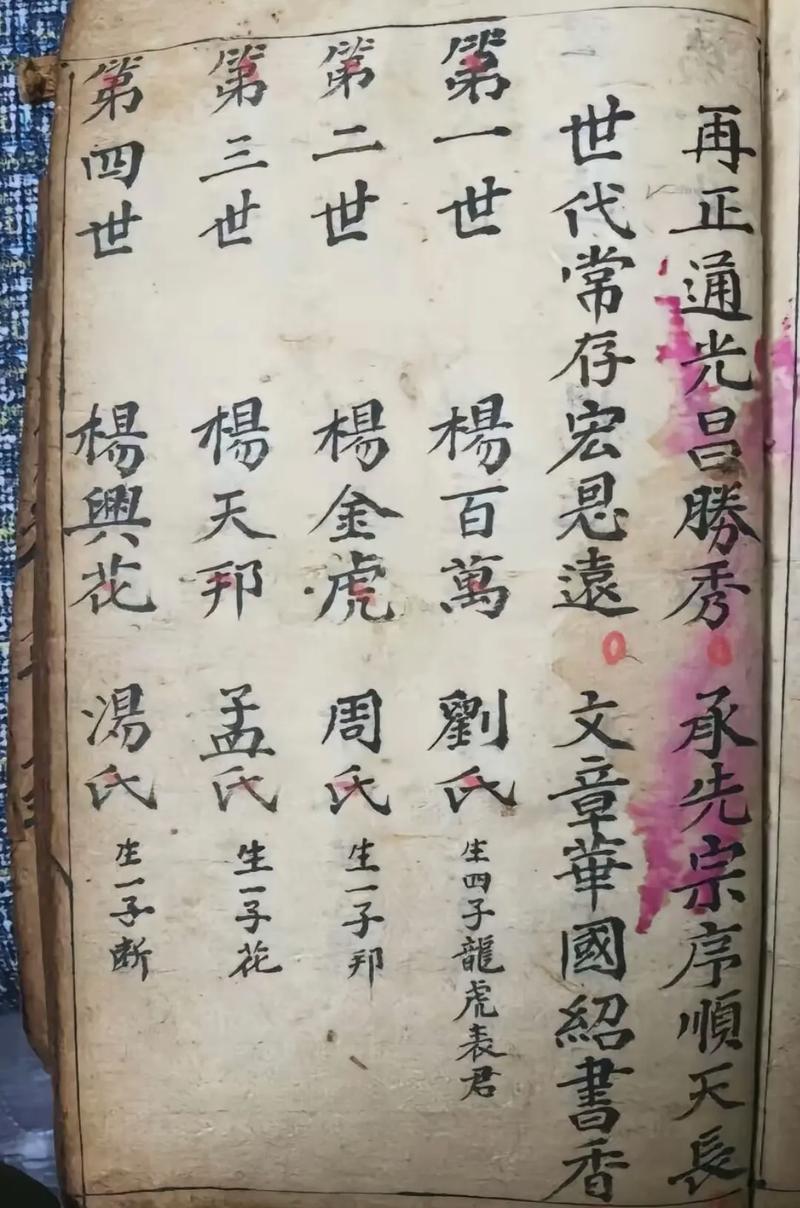 再正通光昌勝秀 承先宗序順天長
世代常存宏恩遠 文章華國紹書香
第一世 楊百萬 劉氏 生四子龍虎表君
第二世 楊金虎 周氏 生一子邦
第三世 楊天邦 孟氏 生一子花
第四世 楊興花 湯氏 生一子断